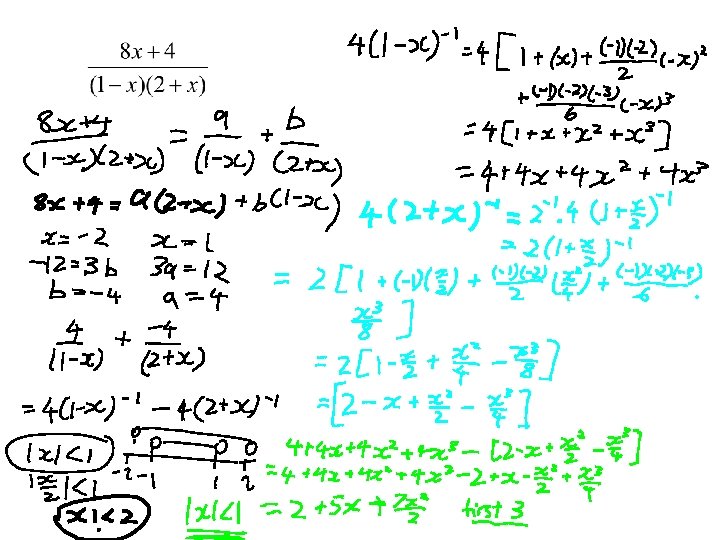 8x+4
(1−x)(2+x)
8x+4/(1-x)(2+x) = a/(1-x) + b/(2+x)
8x+4 = a(2+x) + b(1-x)
x=-2 x=1
-12=3b 3a=12
b=-4 a=4
4/(1-x) + -4/(2+x)
=4(1-x)⁻¹ - 4(2+x)⁻¹
|x|<1 -2 -1 1 2
|x/2|<1
|x|<2 |x|<1
4(1-x)⁻¹ = 4[1+(x)+(-1)(-2)/2(-x)²
+(-1)(-2)(-3)/6(-x)³
=4[1+x+x²+x³]
=4+4x+4x²+4x³
4(2+x)⁻¹ = 2⁻¹.4(1+x/2)⁻¹
=2(1+x/2)⁻¹
= 2[1+(-1)(x/2)+(-1)(-2)/2(x²/4)+(-1)(-2)(-3)/6.
x³/8]
=2[1-x/2+x²/4-x³/8]
=[2-x+x²/2-x³/4]
4+4x+4x²+4x³-[2-x+x²/2-x³/4]
=4+4x+4x²+4x³-2+x-x²/2+x³/4
=2+5x+7x²/2 first 3